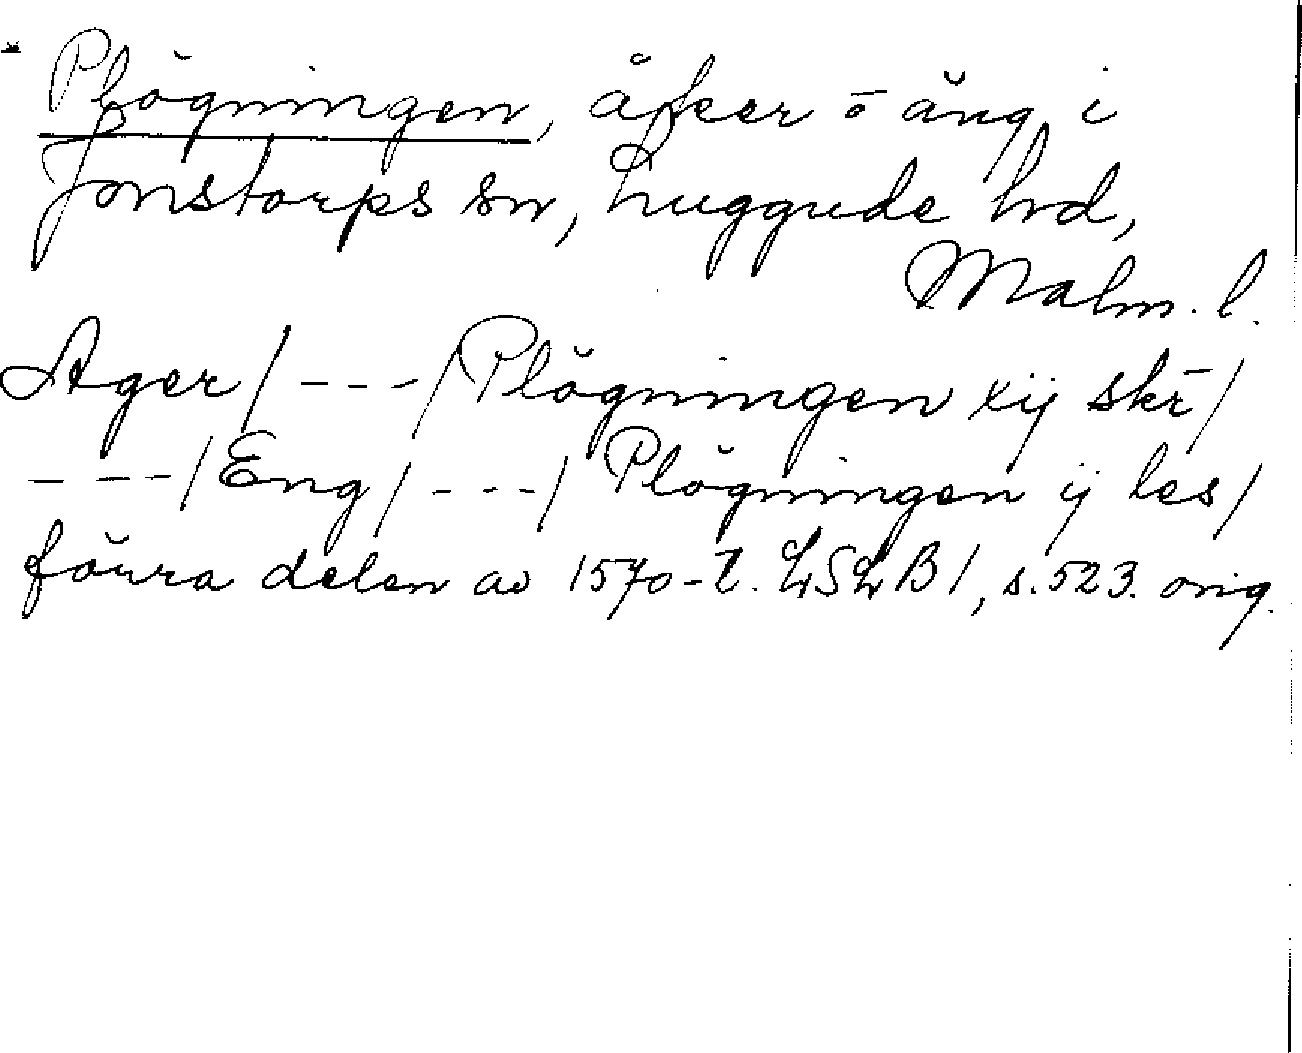 Plögningen, åker o äng i
Jonstorps sn, Luggude hd,
Malm. l.
Ager / - - - / Plögningen xij skr̄ /
- - - / Eng / - - - / Plögningen ij les /
förra delen av 1570-t. LSLB 1, s. 523. orig.